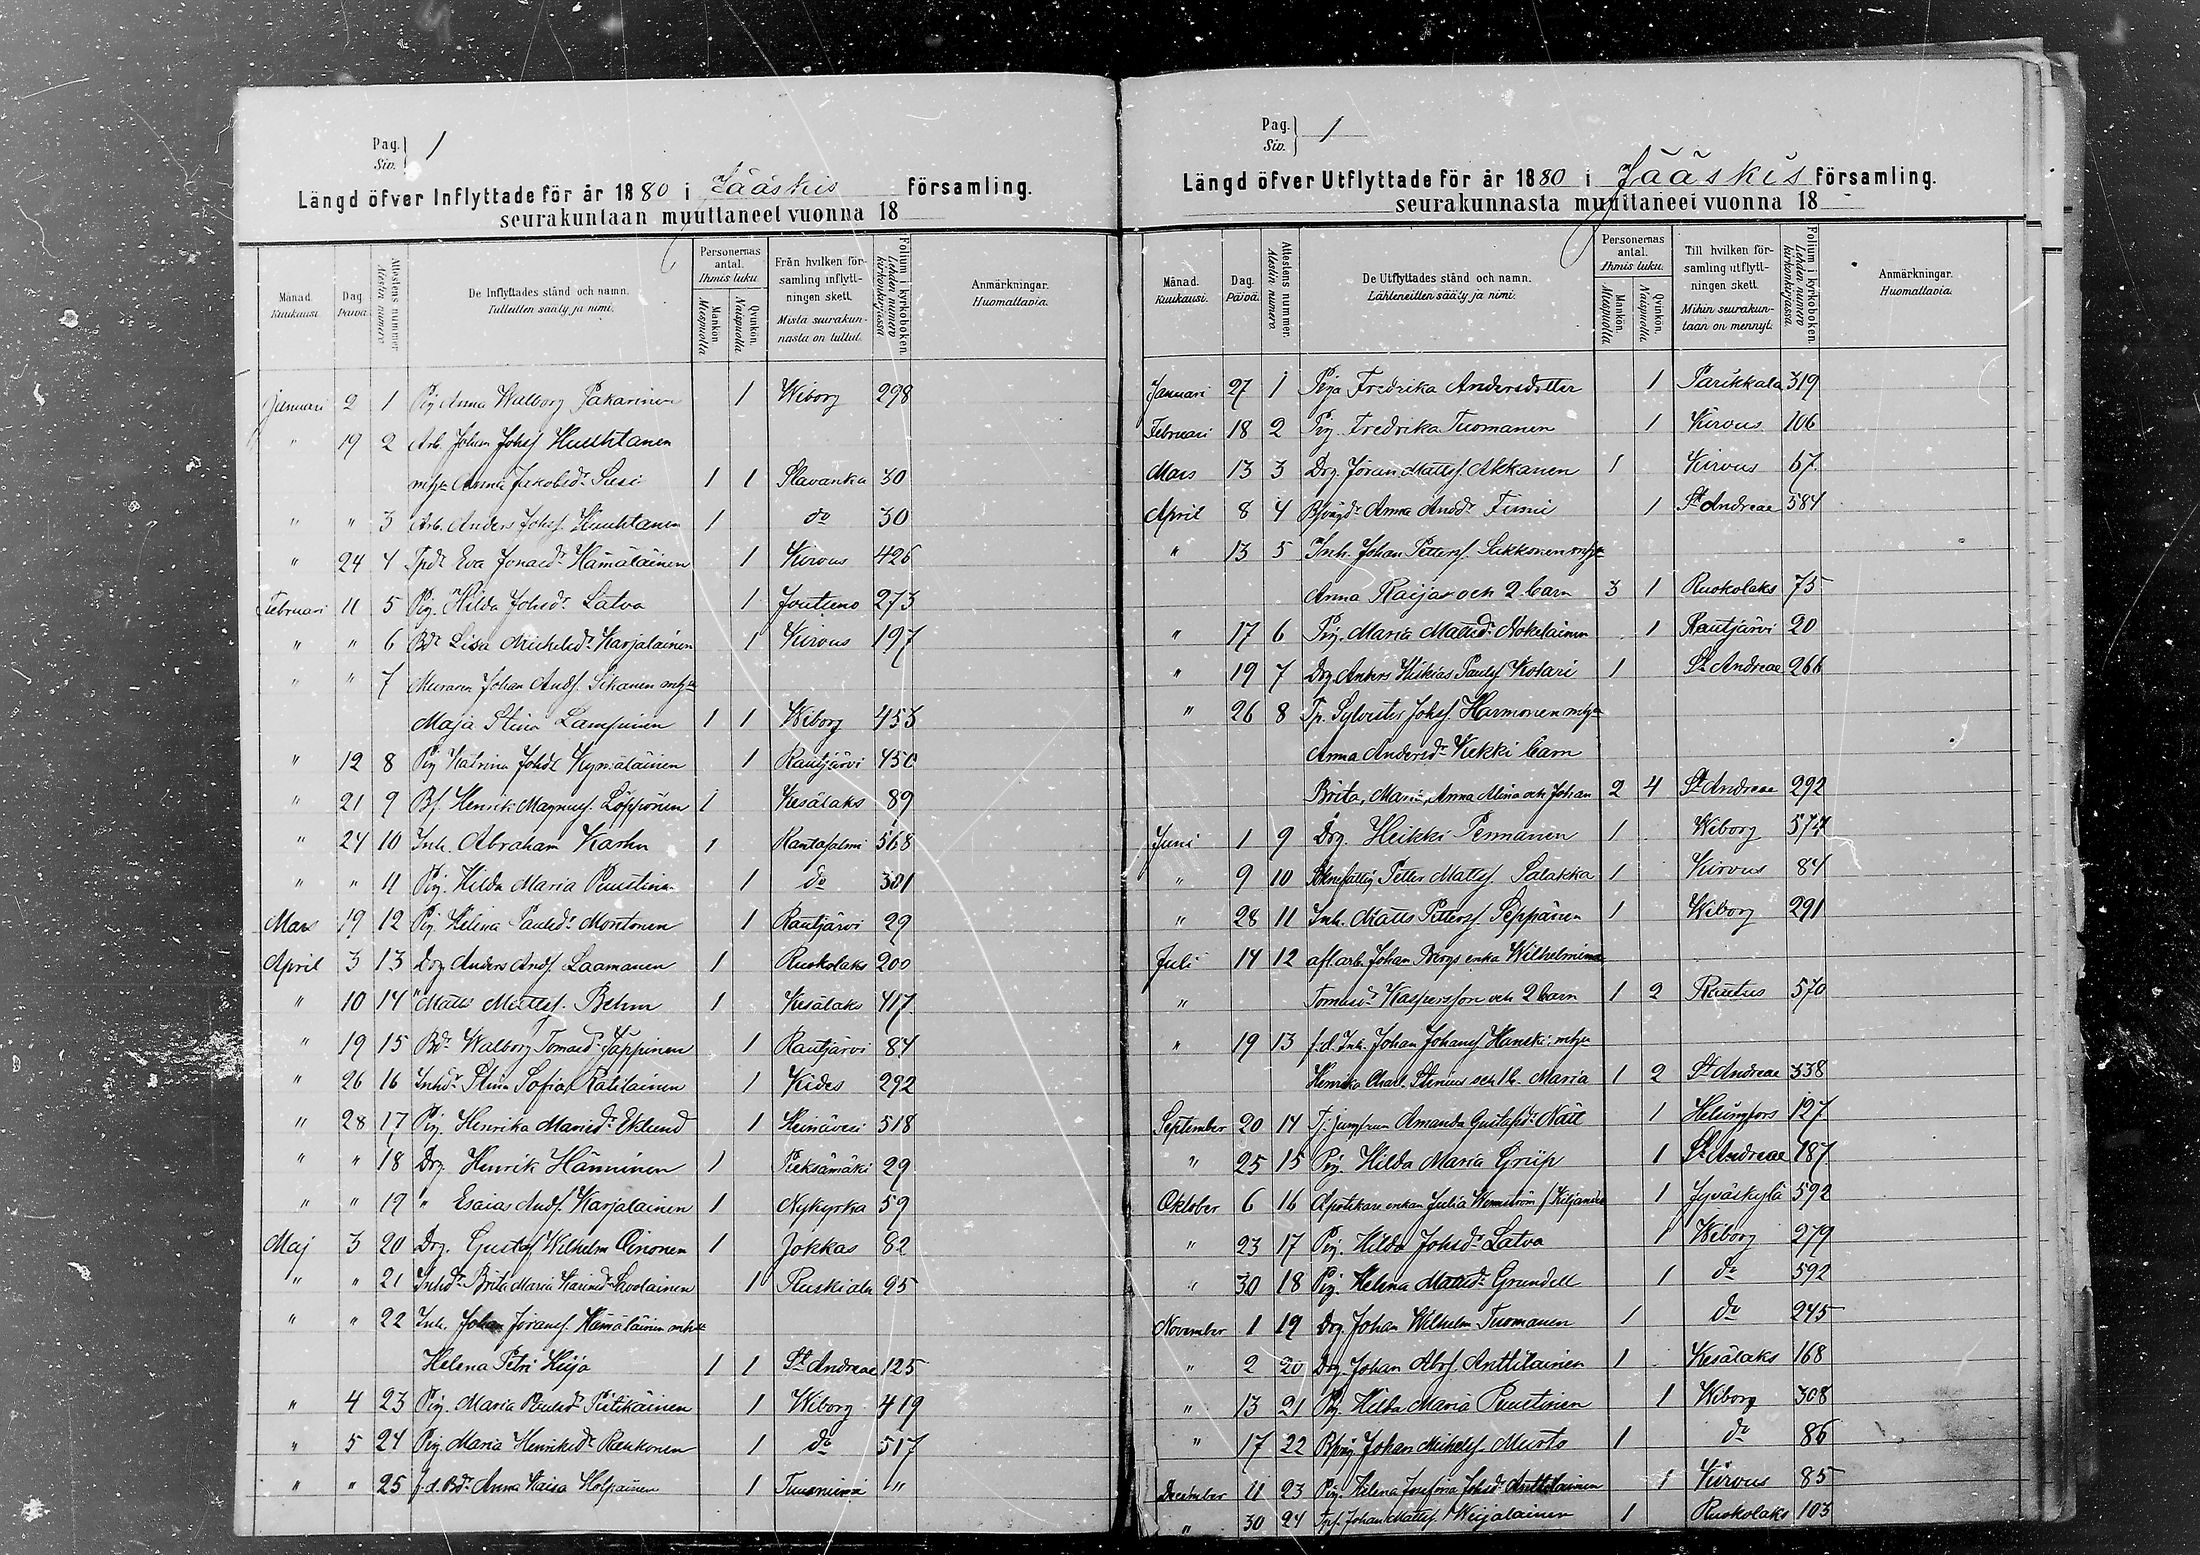 Pag. 1
Siv.
Längd öfver Inflyttade för år 1880 i Jääskis församling.
seurakuntaan muuttaneet vuonna 18
Månad. Kuukausi. | Dag. Päivä. | Attestens nummer. Alestin numero | De Inflyttades stånd och namn. Tulleitten sääty ja nimi. | Personernas antal. Ihmis luku. Mankön. Miespuolia Qvinkön. Naispuolia | Från hvilken församling inflyttningen skett. Mistä seurakunnasta on tullut. | Folium i kyrkoboken. Lehden numero kirkonkirjassa | Anmärkningar. Huomattavia.
Januari 2 1 Pig Anna Walborg Pakarinen 1 Wiborg 298
" 19 2 Arb. Johan Johsf Huuhtanen
mhu Anna Jakobsdr Susi 1 1 Slavanka 30
" " 3 Arb. Anders Johsf. Huuhtanen 1 do 30
" 24 4 Tpdr Eva Jonaedr Hämäläinen 1 Kirvus 426
Februari 11 5 Pig. Hilda Johsdr Latva 1 Joutseno 273
" " 6 Bdr Lisa Michelsdr Karjalainen 1 Kirvus 197
" " 7 Muraren Johan Andf. Sikanen mhu
Maja Stina Lampinen 1 1 Wiborg 453
" 12 8 Pig Katrina Johdr Kymäläinen 1 Rautjärvi 450
" 21 9 Bf. Henrik Magnusf. Löppönen 1 Kesälaks 89
" 24 10 Inh. Abraham Karhu 1 Rantasalmi 568
" " 11 Pig. Hilda Maria Puustinen 1 do 301
Mars 19 12 Pig. Helena Paulsdr Montonen 1 Rautjärvi 29
April 3 13 Drg Anders Andf. Laamanen 1 Ruokolaks 200
" 10 14 " Matts Mattsf. Behm 1 Kesälaks 417
" 19 15 Bdr Walborg Tomasdr Jäppinen 1 Rautjärvi 84
" 26 16 Inhdr Stina Sofia Ratilainen 1 Kides 292
" 28 17 Pig. Henrika Mariedr Eklund 1 Heinävesi 518
" " 18 Drg. Henrik Hänninen 1 Pieksämäki 29
" " 19 " Esaias Andf. Karjalainen 1 Nykyrka 59
Maj 3 20 Drg. Gustaf Wilhelm Oinonen 1 Jokkas 82
" " 21 Inhdr Brita Maria Savolainen 1 Ruskiala 95
" " 22 Inh. Johan Göransf. Hämäläinen mhu
Helena Petri Heijo 1 1 St Andreae 125
" 4 23 Pig. Maria Paulsdr Pitikäinen 1 Wiborg 419
" 5 24 Pig Maria Henriksdr Raukonen 1 do 517
" " 25 f.d. Bdr Anna Kaisa Holpainen 1 "
Pag. 1
Siv.
Längd öfver Utflyttade för år 1880 i Jääskis församling.
seurakunnasta muuttaneet vuonna 18
Månad. Kuukausi. | Dag. Päivä. | Attestens nummer. Alestin numero | De Utflyttades stånd och namn. Lähteneitten sääty ja nimi. | Personernas antal. Ihmis luku. Mankön. Miespuolia Qvinkön. Naispuolia | Till hvilken församling utflyttningen skett. Mihin seurakuntaan on mennyt. | Folium i kyrkoboken. Lehden numero kirkonkirjassa. | Anmärkningar. Huomattavia.
Januari 27 1 Piga Fredrika Andersdotter 1 Parikkala 319
Februari 18 2 Pig. Fredrika Tuomanen 1 Kirvus 106
Mars 13 3 Drg. Jöran Mattsf. Akkanen 1 Kirvus 67
April 8 4 Anna Andsdr Tumi 1 St Andreae 584
" 13 5 Inh. Johan Pettersf. Sukkonen mhu
Anna Raijas och 2 barn 3 1 Ruokolaks 75
" 17 6 Pig. Maria Mattsdr Nokelainen 1 Rautjärvi 20
" 19 7 Drg Anders Hiskias Paulsf Kotari 1 St Andreae 266
" 26 8 Tp. Sylvester Johsf. Harmonen mhu
Anna Andersdr Kekki barn
Brita, Maria, Anna Alina och Johan 2 4 St Andreae 292
Juni 1 9 Drg. Heikki Pennanen 1 Wiborg 574
" 9 10 Petter Mattsf. Salakka 1 Kirvus 84
" 28 11 Inh. Matts Pettersf. Seppänen 1 Wiborg 291
Juli 14 12 afl. arb. Johan Bergs enka Wilhelmina
" Tomasdr Kaspersson och 2 barn 1 2 Rautus 570
" 19 13 f.d. Inh. Johan Johansf Hanski mhu
Henrika Charl. Stenius och 1 b. Maria 1 2 St Andreae 338
September 20 14 Tj. jungfrun Amanda Gustafsdr Nätt 1 Helsingfors 127
" 25 15 Pig. Hilda Maria Griip 1 St Andreae 187
Oktober 6 16 Apotikare enkan Julia Wennström / Kiljander 1 Jyväskylä 592
" 23 17 Pig. Hilda Johsdr Latva 1 Wiborg 279
" 30 18 Pig. Helena Mattsdr Grundell 1 do 592
November 1 19 Drg. Johan Wilhelm Tuomanen 1 do 245
" 2 20 Drg. Johan Abrf. Anttilainen 1 Kesälaks 168
" 13 21 Pig. Hilda Maria Puustinen 1 Wiborg 308
" 17 22 Johan Michelsf. Musto 1 do 86
December 11 23 Pig. Helena Josefina Johsdr Anttilainen 1 Kirvus 85
" 30 24 Tpf. Johan Mattsf. Weijalainen 1 Ruokolaks 103